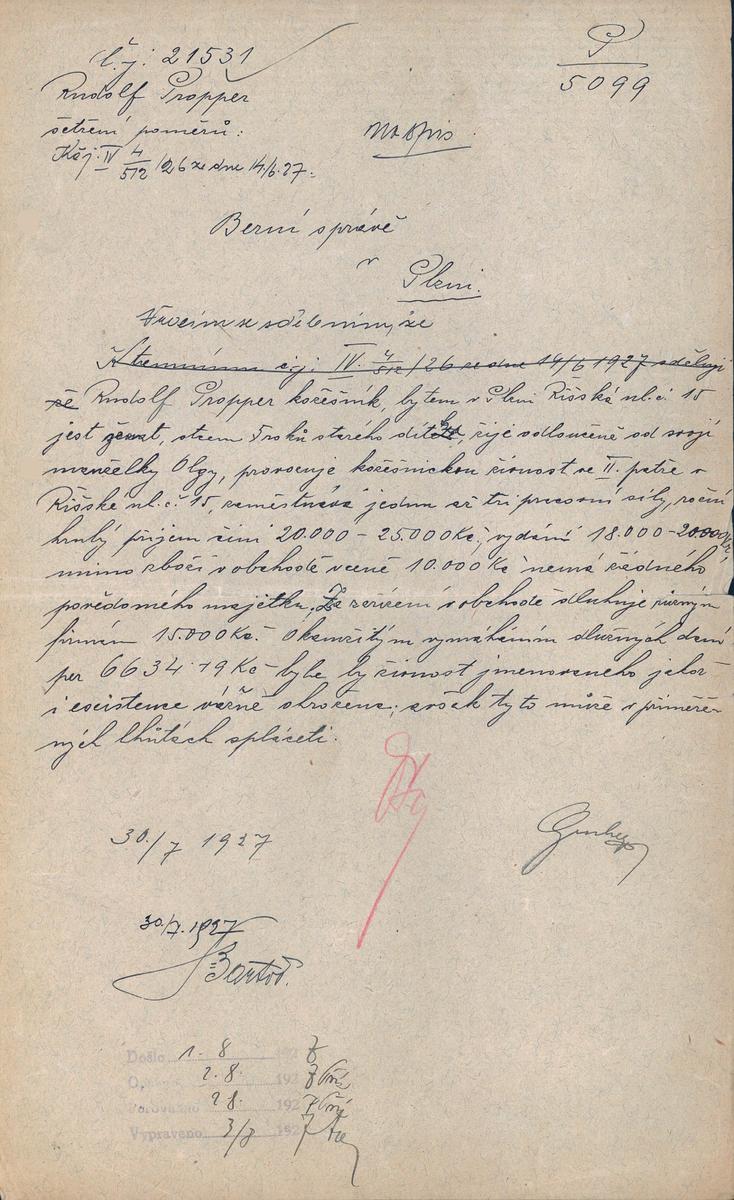 č.j: 21531
P
5099
Rudolf Propper
šetření poměrů:
K čj. IV 4/512 /26 ze dne 14/6.27.
Na spis
Berní správě
v
Plzni.
Vracím se sdělením, že
K tamnímu č.j: IV. 4/512 /26 ze dne 14/6 1927 sděluji
že Rudolf Propper kožešník, bytem v Plzni Říšská ul. č. 15
jest ženat, otcem 7 roků starého dítěte, žije odloučeně od svojí
manželky Olgy, provozuje kožešnickou živnost ve II. patře v
Říšské ul. č. 15, zaměstnává jednu až tři pracovní síly, roční
hrubý příjem činí 20.000 - 25.000 Kč, vydání 18.000 - 20.000 Kč,
mimo zboží v obchodě v ceně 10.000 Kč nemá žádného
povědomého majetku, Za zařízení v obchodě dluhuje různým
firmám 15.000 Kč. Okamžitým vymáháním dlužných daní
per 6634.19 Kč byla by živnost jmenovaného jakož
i existence vážně ohrožena; avšak tyto může v přiměře-
ných lhůtách spláceti.
30./7 1927
30./7. 1927
Bartoš.
Došlo 1. 8 192 7
O 2. 8. 192 7
Porovnáno 2 8. 192 7
Vypraveno 3/8 192 7